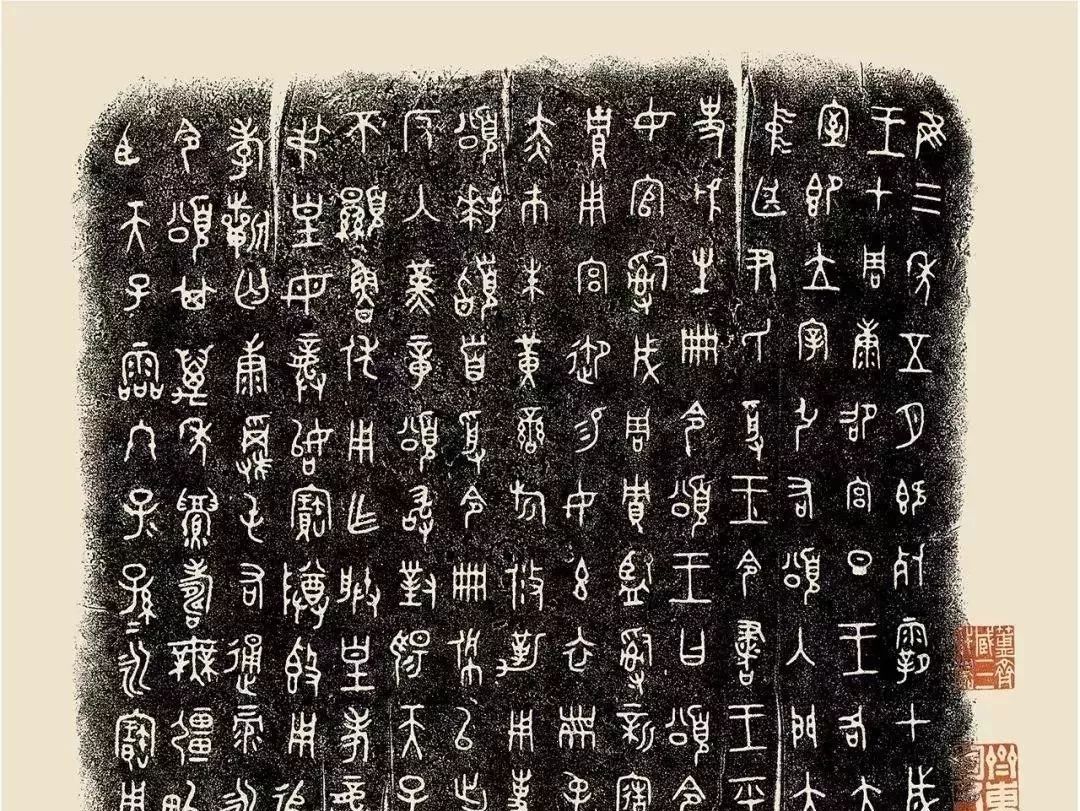 隹三年五月既死霸甲戌
王才周康卲宮旦王各大
室即立宰引右頌入門立
中廷尹氏受王令書王乎
史虢生冊令頌王曰頌令
女官𤔲成周貯監𤔲新寤
貯用宮御易女玄衣黹屯
赤市朱黃䜌旂攸勒用事
頌拜𩒨首受令冊佩以出
反入堇章頌敢對揚天子
不顯魯休用乍朕皇考龏
弔皇母龏姒寶尊𣪘用追
孝祈匄康𩛥屯右通彔永
令頌其萬年眉壽無疆畯
臣天子霝冬子孫永寶用